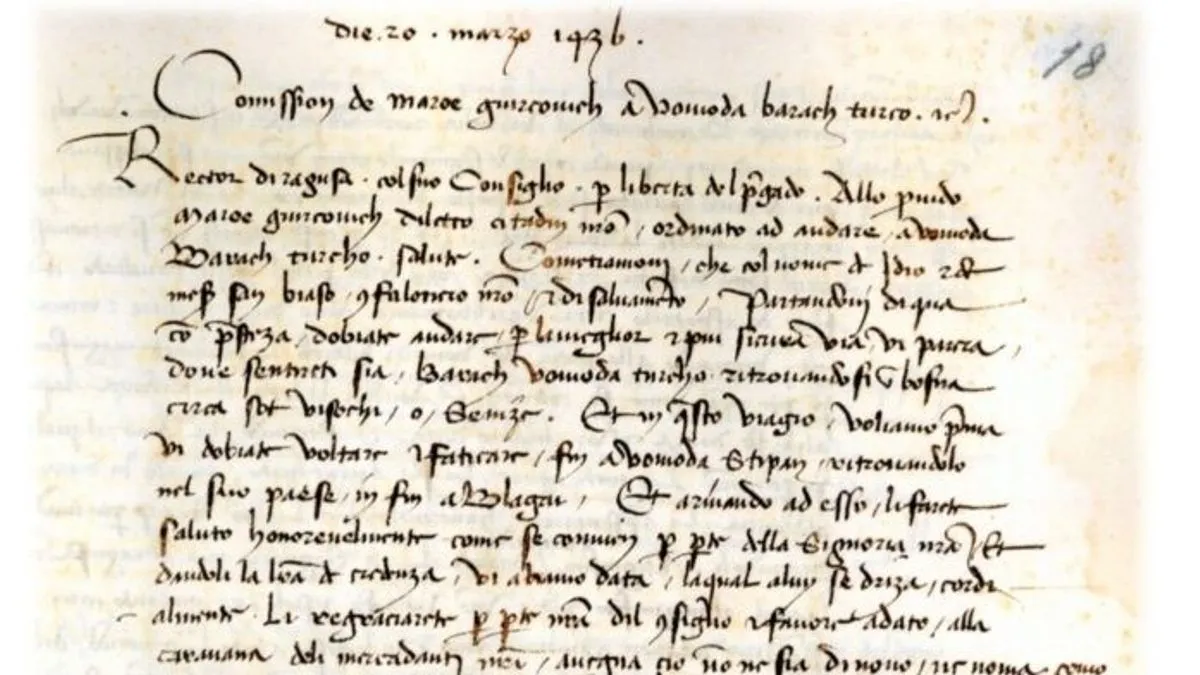 die. 20. marzo 1436.
18
Comission de Maroe giurcovich a vovoda barach turco. etc.
Rector di ragusa. col suo Consiglio. p liberta del pgado. Allo pvido
Maroe giurcovich diletto citadin nro / ordinato ad andare / a vovoda
Barach turcho. salute. Cometiamovi / che col nome de Idio & de
mess san biaso / 9falonero nro / & di salvameto / Partandovi di qua
co psteza / dobiate andare / p la meglior & piu sicura via / vi parera /
dove sentirete sia / Barach vovoda turcho ritrovandosi i bosna
circa sot visochi / o / Senize. Et in qsto viagio / voliamo pma
vi dobiate voltare & faticare / fin a vovoda Stipan / ritrovandolo
nel suo paese / in fin a Blagai / Et arivando ad esso / li farete
saluto honorevelmente come se convien p pte della Signoria nra / Et
dandoli la lra de credenza / vi abiamo data / laqual aluy se driza / cordi
almente. Li regraciarete p pte nra dil 9siglio & favore adato / alla
caravana deli mercadanti nri / avegna cio no ne sia di novo / ne noma como